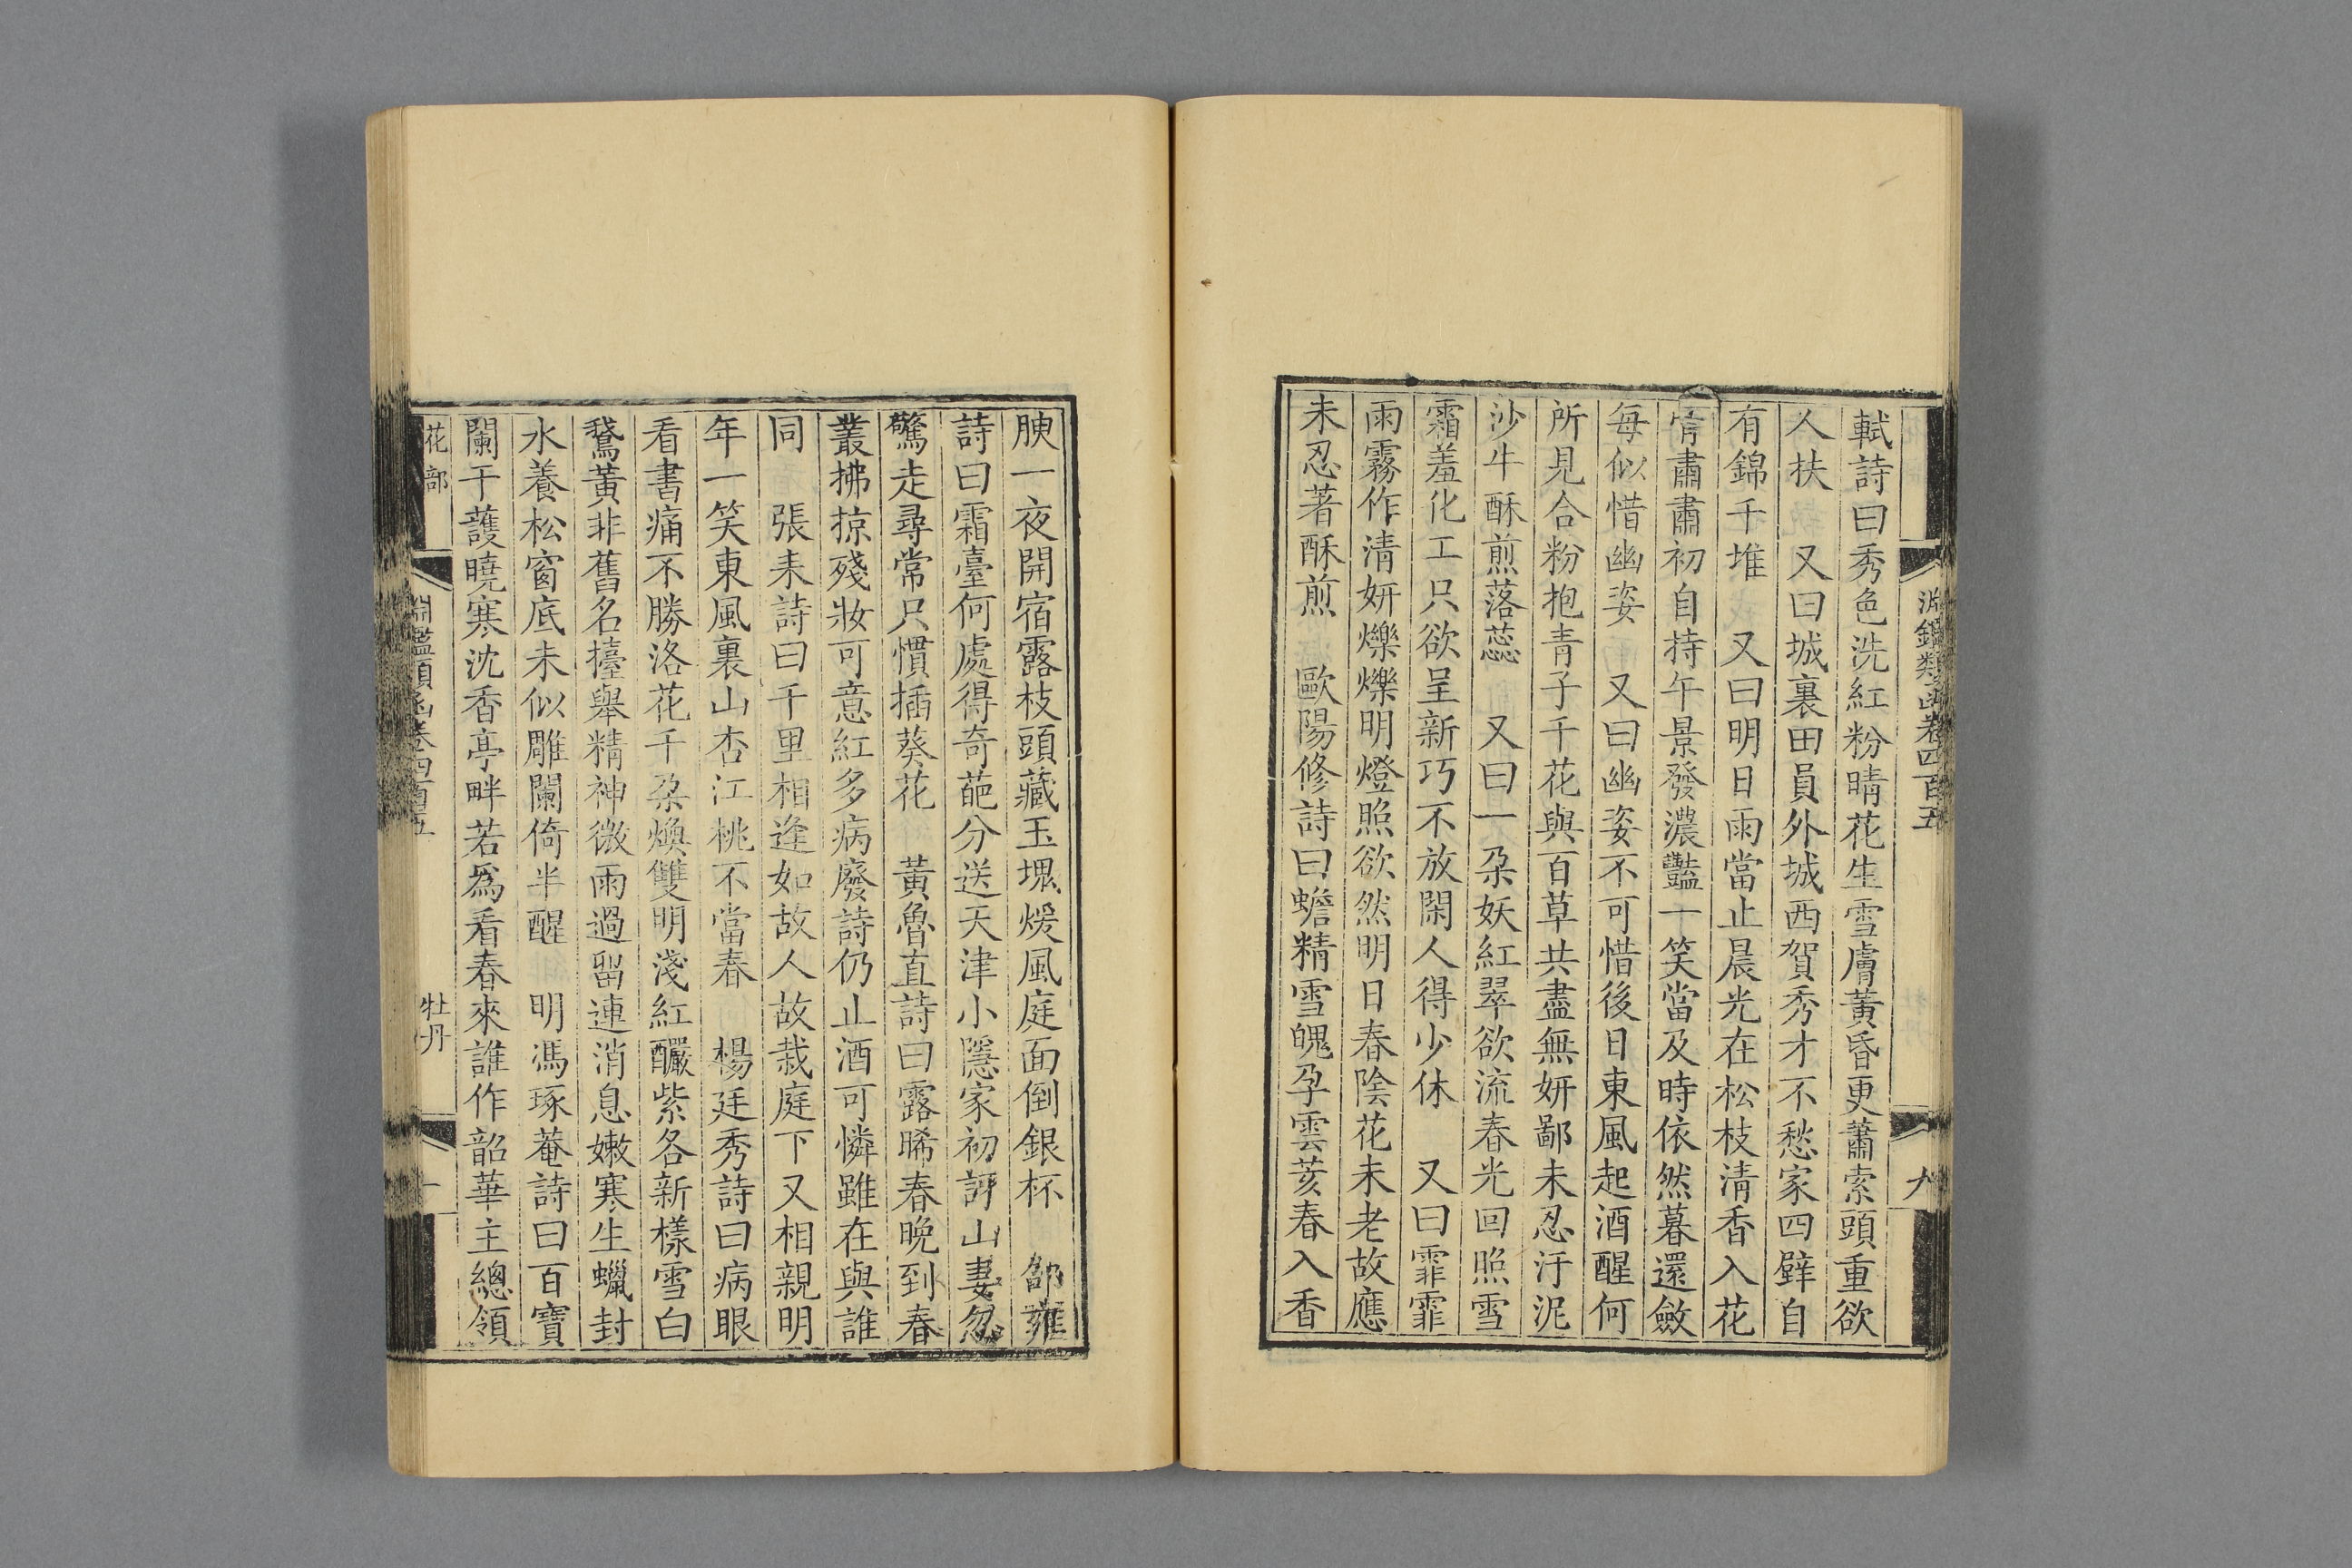 淵鑑類函卷四百五
九
軾詩曰秀色洗紅粉晴花生雪膚黃昏更蕭索頭重欲
人扶 又曰城裏田員外城西賀秀才不愁家四壁自
有錦千堆 又曰明日雨當止晨光在松枝清香入花
骨肅肅初自持午景發濃豔一笑當及時依然暮還斂
每似惜幽姿 又曰幽姿不可惜後日東風起酒醒何
所見合粉抱青子千花與百草共盡無妍鄙未忍汙泥
沙牛酥煎落蕊 又曰一朶妖紅翠欲流春光回照雪
霜羞化工只欲呈新巧不放閑人得少休 又曰霏霏
雨霧作清妍爍爍明燈照欲然明日春陰花未老故應
未忍著酥煎 歐陽修詩曰蟾精雪魄孕雲荄春入香
腴一夜開宿露枝頭藏玉塊煖風庭面倒銀杯 邵雍
詩曰霜臺何處得奇葩分送天津小隱家初訝山妻忽
驚走尋常只慣插葵花 黃魯直詩曰露晞春晚到春
叢拂掠殘妝可意紅多病廢詩仍止酒可憐雖在與誰
同 張耒詩曰千里相逢如故人故栽庭下又相親明
年一笑東風裏山杏江桃不當春 楊廷秀詩曰病眼
看書痛不勝洛花千朶煥雙明淺紅釅紫各新樣雪白
鵞黃非舊名擡舉精神微雨過留連消息嫩寒生蠟封
水養松窗底未似雕闌倚半醒 明馮琢菴詩曰百寶
闌干護曉寒沈香亭畔若爲看春來誰作韶華主總領
花部 淵鑑類函卷四百五 牡丹